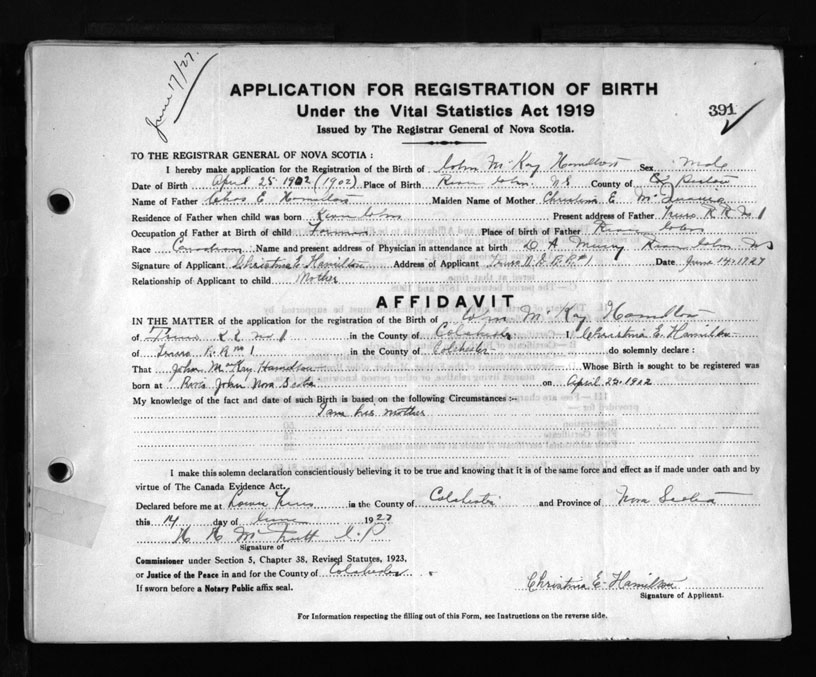 June 17/27.
APPLICATION FOR REGISTRATION OF BIRTH
Under the Vital Statistics Act 1919
391
Issued by The Registrar General of Nova Scotia.
TO THE REGISTRAR GENERAL OF NOVA SCOTIA :
I hereby make application for the Registration of the Birth of John McKay Hamilton Sex Male
Date of Birth April 25 1902 (1902) Place of Birth River John NS County of Pictou
Name of Father Chas E Hamilton Maiden Name of Mother Christina E
Residence of Father when child was born River John Present address of Father Truro R R No 1
Occupation of Father at Birth of child Place of birth of Father River John
Race Canadian Name and present address of Physician in attendance at birth D A Murray River John NS
Signature of Applicant Christina E. Hamilton Address of Applicant Truro N.S. R.R. #1 Date June 14, 1927
Relationship of Applicant to child Mother
AFFIDAVIT
IN THE MATTER of the application for the registration of the Birth of John McKay Hamilton
of Truro R R No 1 in the County of Colchester I Christina E. Hamilton
of Truro R. R No 1 in the County of Colchester do solemnly declare :
That John McKay Hamilton Whose Birth is sought to be registered was
born at River John Nova Scotia on April 25 1902
My knowledge of the fact and date of such Birth is based on the following Circumstances :-
I am his mother
I make this solemn declaration conscientiously believing it to be true and knowing that it is of the same force and effect as if made under oath and by
virtue of The Canada Evidence Act.
Declared before me at Lower Truro in the County of Colchester and Province of Nova Scotia
this 14 day of June 1927
Signature of
Commissioner under Section 5, Chapter 38, Revised Statutes, 1923,
or Justice of the Peace in and for the County of Colchester
If sworn before a Notary Public affix seal.
Christina E. Hamilton
Signature of Applicant.
For Information respecting the filling out of this Form, see Instructions on the reverse side.